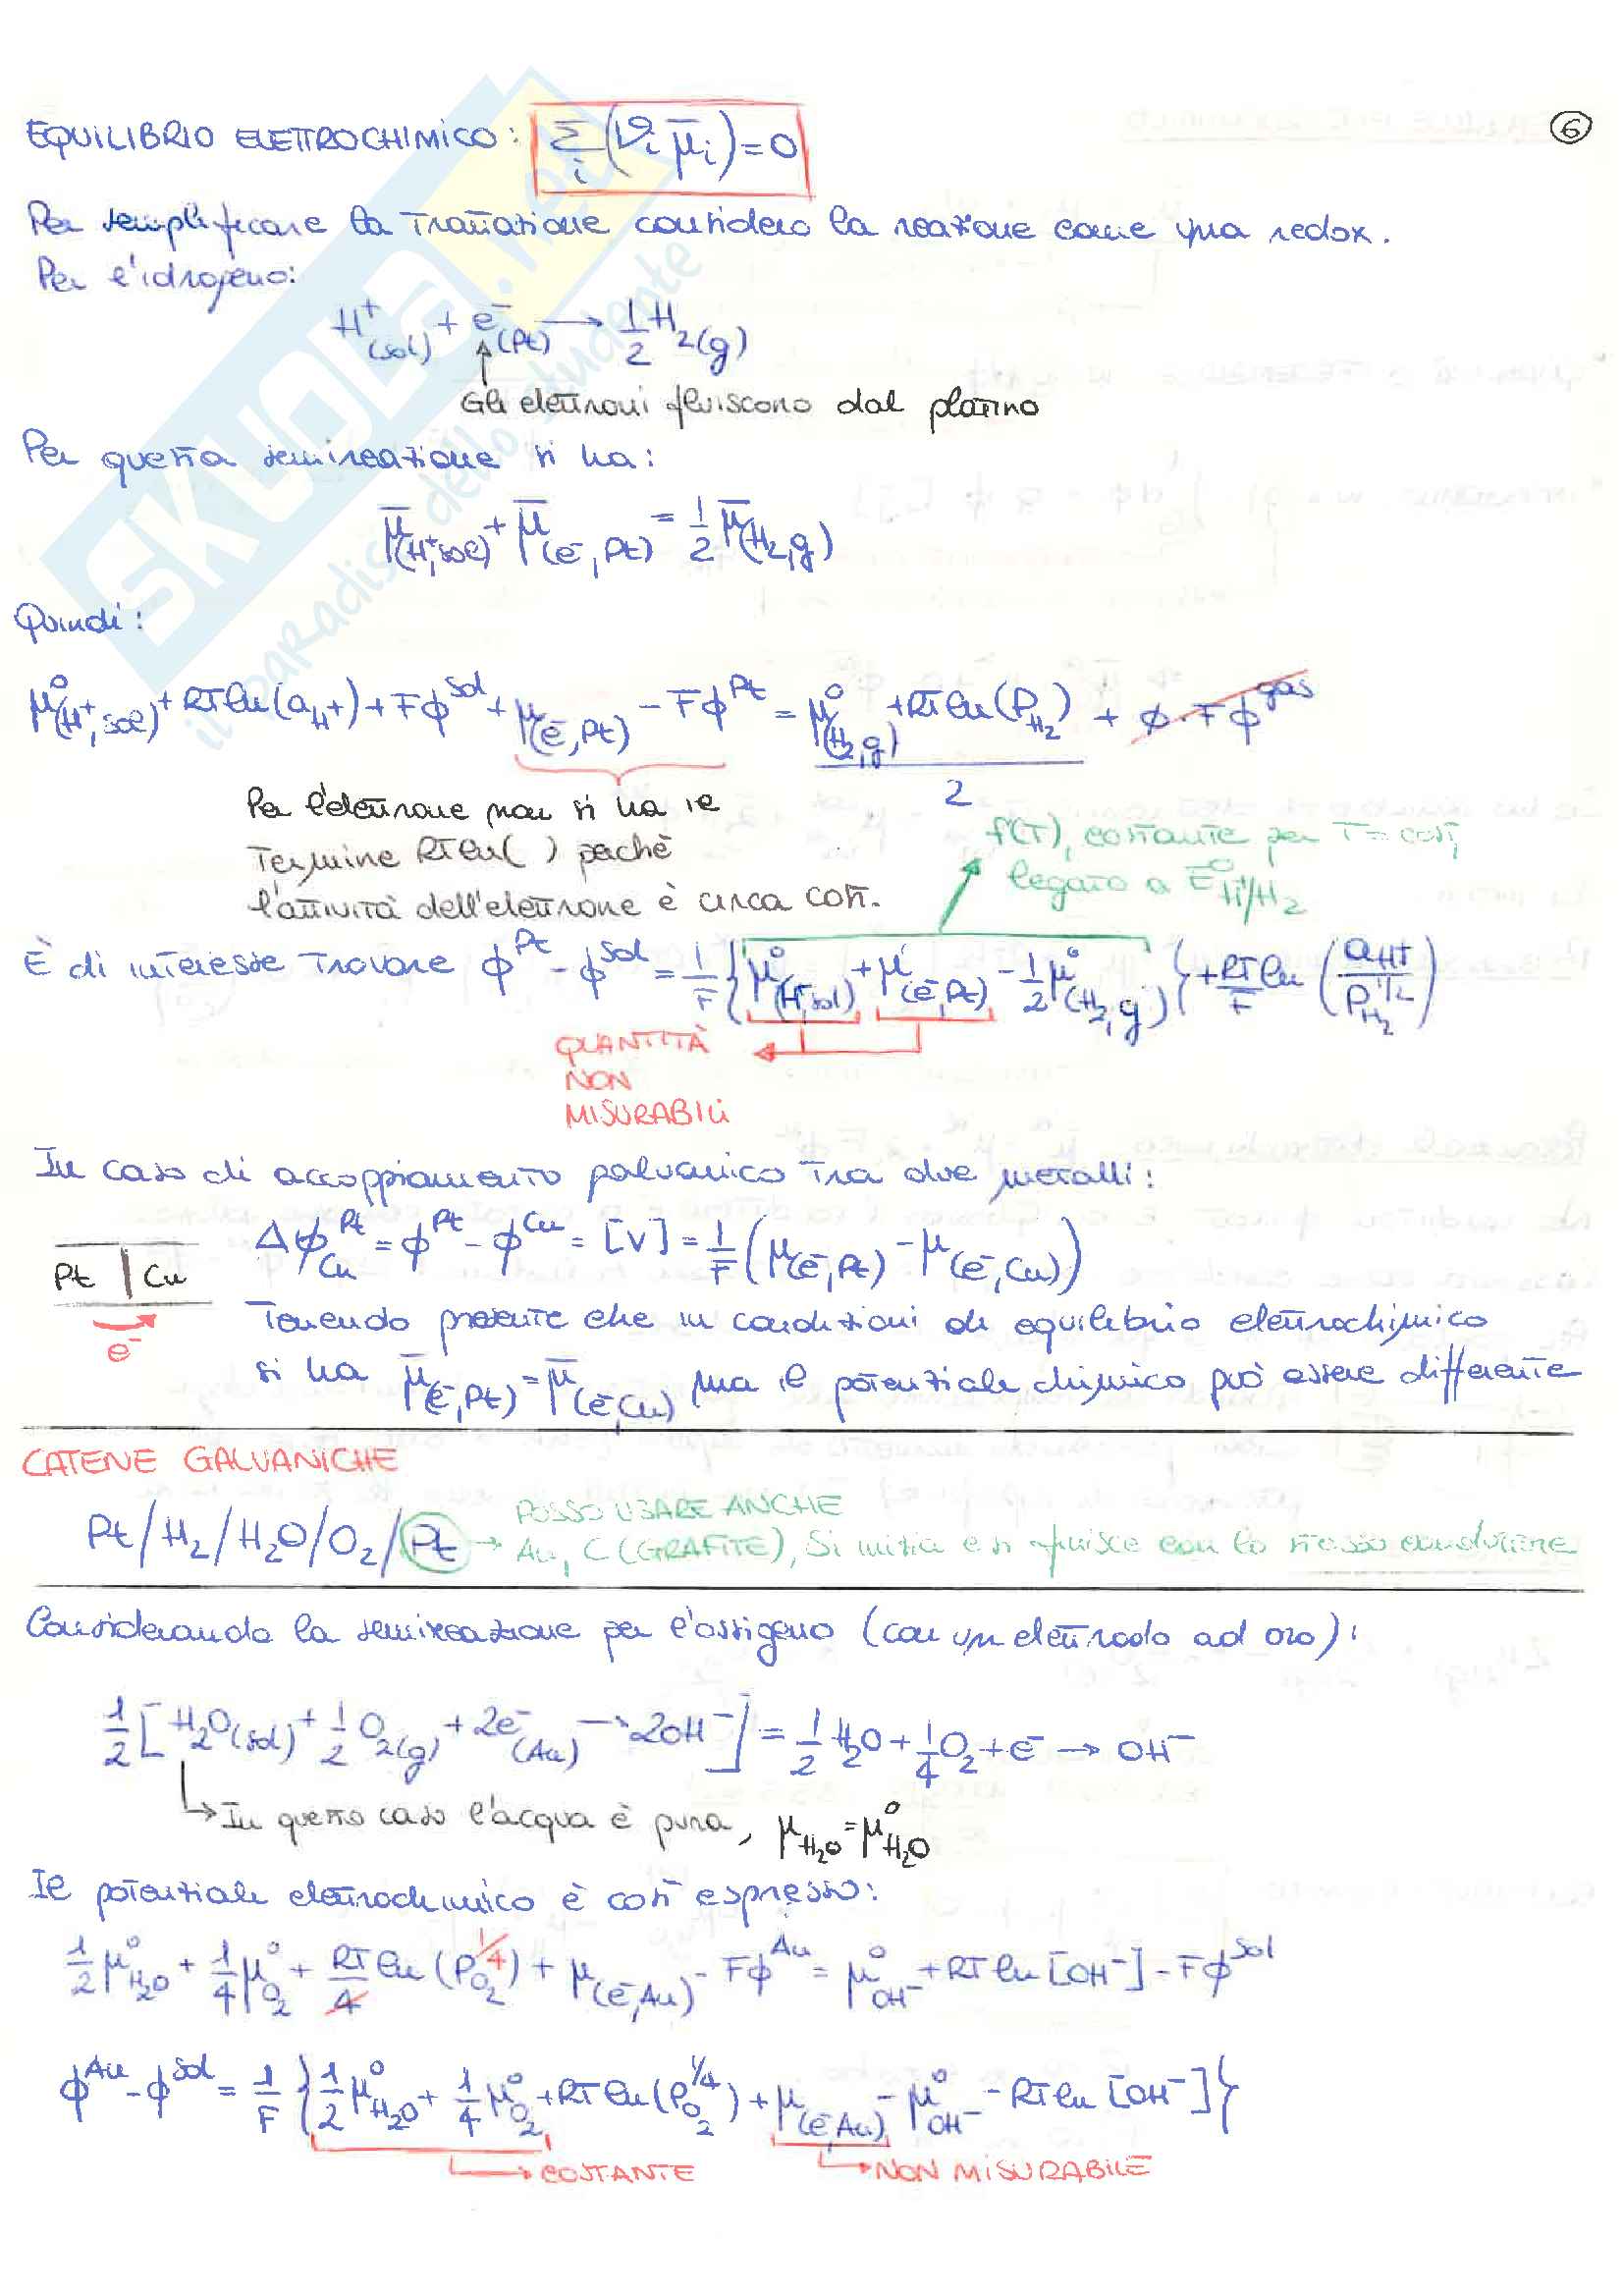 EQUILIBRIO ELETTROCHIMICO: Σi(νi μ̄i)=0
6
Per semplificare la trattazione considero la reazione come una redox.
Per l'idrogeno:
H⁺(sol) + e⁻(Pt) → 1/2 H2(g)
Gli elettroni fluiscono dal platino
Per questa semireazione si ha:
μ̄(H⁺,sol) + μ̄(e⁻,Pt) = 1/2 μ̄(H2,g)
Quindi:
μ°(H⁺,sol) + RT ln(aH⁺) + Fϕ^Sol + μ(e⁻,Pt) - Fϕ^Pt = (μ°(H2,g) + RT ln(PH2))/2 + ϕ·Fϕ^gas
Per l'elettrone non si ha il
termine RT ln( ) perché
l'attività dell'elettrone è circa cost.
f(T), costante per T=cost,
legato a E°H⁺/H2
È di interesse trovare ϕ^Pt - ϕ^Sol = 1/F {μ°(H⁺,sol) + μ(e⁻,Pt) - 1/2 μ°(H2,g)} + RT/F ln(aH⁺/PH2^1/2)
QUANTITÀ
NON
MISURABILI
In caso di accoppiamento galvanico tra due metalli:
Δϕ^Pt_Cu = ϕ^Pt - ϕ^Cu = [V] = 1/F (μ(e⁻,Pt) - μ(e⁻,Cu))
Pt | Cu
e⁻
Tenendo presente che in condizioni di equilibrio elettrochimico
si ha μ̄(e⁻,Pt) = μ̄(e⁻,Cu) ma il potenziale chimico può essere differente
CATENE GALVANICHE
Pt/H2/H2O/O2/Pt → POSSO USARE ANCHE
Au, C (GRAFITE), Si inizia e si finisce con lo stesso conduttore
Considerando la semireazione per l'ossigeno (con un elettrodo ad oro):
1/2 [H2O(sol) + 1/2 O2(g) + 2e⁻(Au) → 2OH⁻] = 1/2 H2O + 1/4 O2 + e⁻ → OH⁻
In questo caso l'acqua è pura, μH2O = μ°H2O
Il potenziale elettrochimico è così espresso:
1/2 μ°H2O + 1/4 μ°O2 + RT/4 ln(PO2^1/4) + μ(e⁻,Au) - Fϕ^Au = μ°OH⁻ + RT ln[OH⁻] - Fϕ^Sol
ϕ^Au - ϕ^Sol = 1/F {1/2 μ°H2O + 1/4 μ°O2 + RT ln(PO2^1/4) + μ(e⁻,Au) - μ°OH⁻ - RT ln[OH⁻]}
COSTANTE
NON MISURABILE
SKUOLA.net
il paradiso dello studente